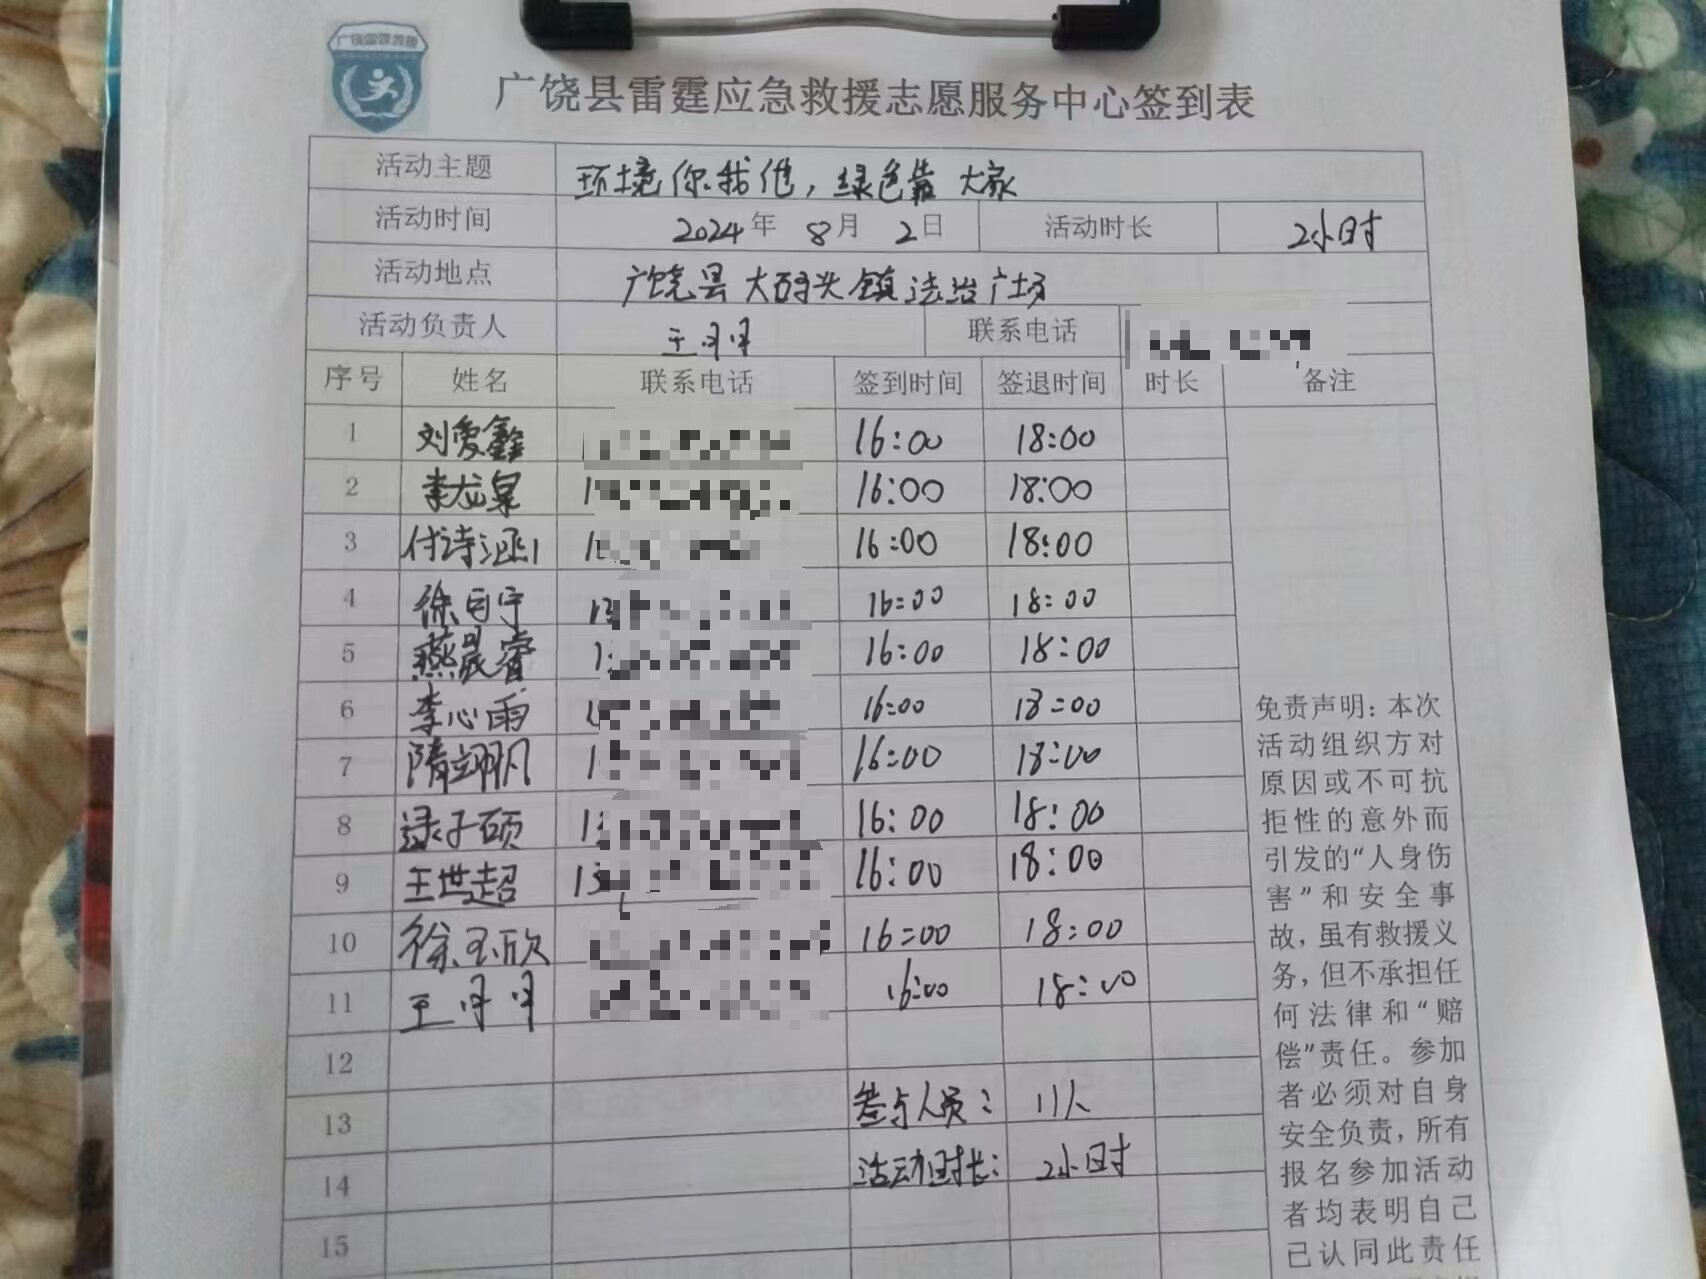 广饶雷霆救援
广饶县雷霆应急救援志愿服务中心签到表
活动主题 环境你我他，绿色靠大家
活动时间 2024年 8月 2日 活动时长 2小时
活动地点 广饶县大码头镇法治广场
活动负责人 王丹丹 联系电话
序号 姓名 联系电话 签到时间 签退时间 时长 备注
1 刘爱鑫 16:00 18:00
2 李龙泉 1 16:00 18:00
3 付诗涵 1 16:00 18:00
4 徐自宇 13 16:00 18:00
5 燕晟睿 1 16:00 18:00
6 李心雨 1 16:00 18:00
7 隋翊帆 1 16:00 18:00
8 逯子硕 1 16:00 18:00
9 王世超 13 16:00 18:00
10 徐玉欣 16:00 18:00
11 王丹丹 16:00 18:00
12
13 参与人员： 11人
14 活动时长： 2小时
15
免责声明：本次
活动组织方对
原因或不可抗
拒性的意外而
引发的“人身伤
害”和安全事
故，虽有救援义
务，但不承担任
何法律和“赔
偿”责任。参加
者必须对自身
安全负责，所有
报名参加活动
者均表明自己
已认同此责任